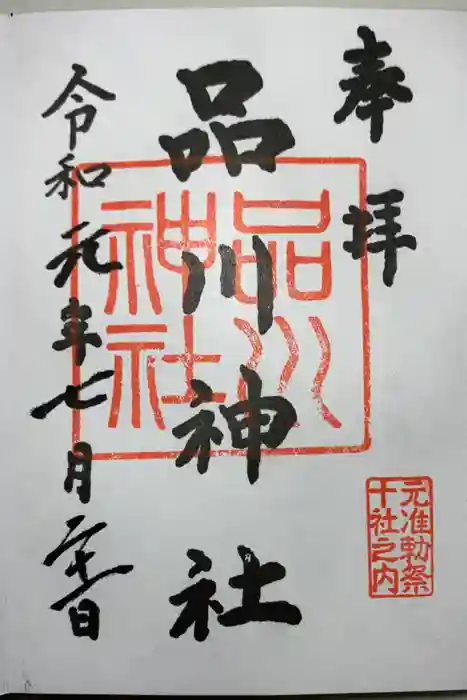 奉拝
品川神社
令和元年七月二十一日
品川
神社
元准勅祭
十社之内